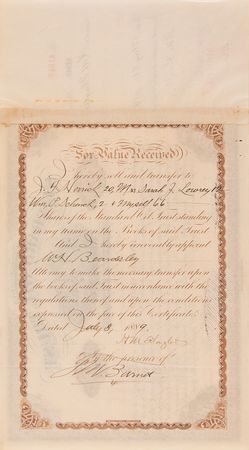 For Value Received
I hereby sell and transfer to
20, Mrs Sarah J. Lowrey
Wm. P. 2 & Myself 66
Shares of the Standard Oil Trust standing
in my name on the Books of said Trust
And I hereby irrevocably appoint
W H Beardsley
Atty to make the necessary transfer upon
the books of said Trust in accordance with the
regulations thereof and upon the conditions
expressed on the face of this Certificate.
Dated July 3, 1889.
H M
In the presence of